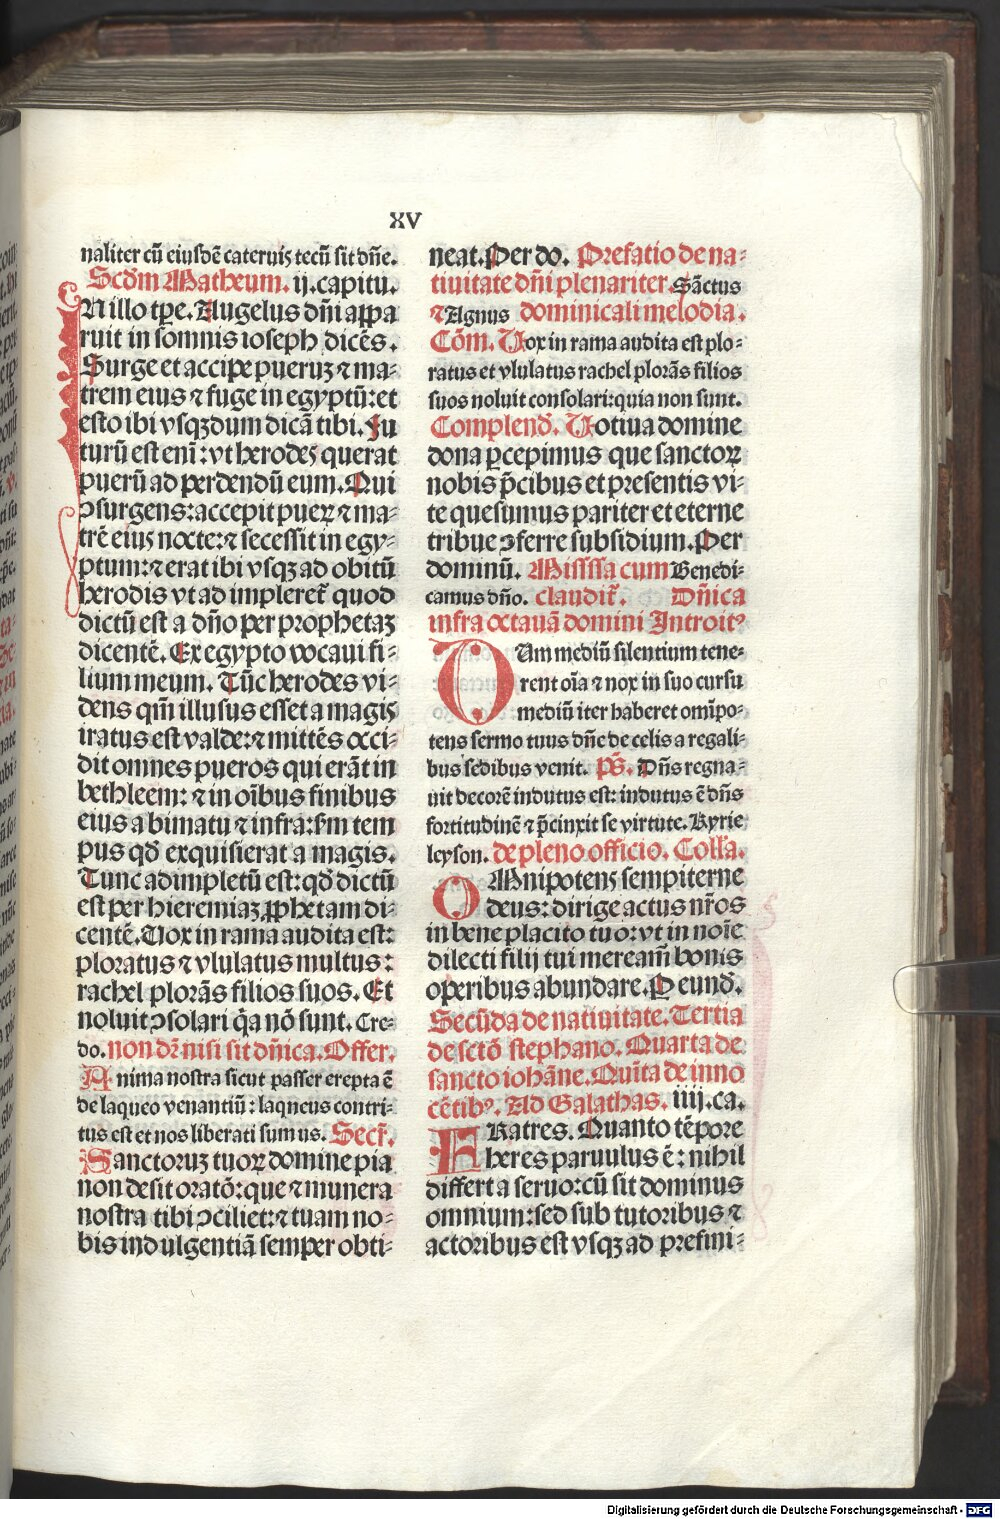 XV
naliter cū eiusdē cateruis tecū sit dn̄e.
Scd̄m Matheum. ij. capitu.
IN illo tp̄e. Angelus dn̄i appa
ruit in somnis ioseph dicēs.
Surge et accipe pueruꝫ ⁊ ma⸗
trem eius ⁊ fuge in egyptū: et
esto ibi vsqꝫ dum dicā tibi. Fu
turū est eni᷒: vt herodes querat
puerū ad perdendū eum. Qui
ↄsurgens: accepit pueꝝ ⁊ ma⸗
trē eiuꝰ nocte: ⁊ secessit in egy⸗
ptum: ⁊ erat ibi vsqꝫ ad obitū
herodis vt ad impleret᷑ quod
dictū est a dn̄o per prophetaꝫ
dicentē. Ex egypto vocaui fi⸗
lium meum. Tūc herodes vi⸗
dens qm̄ illusus esset a magis
iratus est valde: ⁊ mittēs occi⸗
dit omnes pueros qui erāt in
bethleem: ⁊ in oībus finibus
eius a bimatu ⁊ infra: sm̄ tem
pus qd̄ exquisierat a magis.
Tunc adimpletū est: qd̄ dictū
est per hieremiaꝫ ꝓphetam di⸗
centē. Uox in rama audita est:
ploratus ⁊ vlulatus multus:
rachel plorās filios suos. Et
noluit ↄsolari q̄a nō sunt. Cre⸗
do. non dr̄ nisi sit dn̄ica. Offer.
Anima nostra sicut passer erepta ē
de laqueo venantiū: laqueus contri⸗
tus est et nos liberati sumus. Secr̄.
Sanctoruꝫ tuoꝝ domine pia
non desit oratō: que ⁊ munera
nostra tibi ↄciliet: ⁊ tuam no⸗
bis indulgentiā semper obti⸗
neat. Per do. Prefatio de na⸗
tiuitate dn̄i plenariter. Sāctus
⁊ Agnus dominicali melodia.
Cōm. Uox in rama audita est plo⸗
ratus et vlulatus rachel plorās filios
suos noluit consolari: quia non sunt.
Complend̄. Uotiua domine
dona ꝑcepimus que sanctoꝝ
nobis p̄cibus et presentis vi⸗
te quesumus pariter et eterne
tribue ↄferre subsidium. Per
dominū. Misssa cum Benedi⸗
camus dn̄o. claudit᷑. Dn̄ica
infra octauā domini Introitꝰ
DUm mediū silentium tene⸗
rent oīa ⁊ nox in suo cursu
mediū iter haberet omīpo⸗
tens sermo tuus dn̄e de celis a regali⸗
bus sedibus venit. pš. Dn̄s regna⸗
uit decorē indutus est: indutus ē dn̄s
fortitudinē ⁊ p̄cinxit se virtute. Kyrie
leyson. de pleno officio. Coll̄a.
OMnipotens sempiterne
deus: dirige actus nr̄os
in bene placito tuo: vt in noīe
dilecti filij tui meream᷑ bonis
operibus abundare. P eund̄.
Secūda de natiuitate. Tertia
de sctō stephano. Quarta de
sancto iohāne. Quīta de inno
cētibꝰ. Ad Galathas. iiij. ca.
FRatres. Quanto tēpore
heres paruulus ē: nihil
differt a seruo: cū sit dominus
omnium: sed sub tutoribus ⁊
actoribus est vsqꝫ ad prefini⸗
Digitalisierung gefördert durch die Deutsche Forschungsgemeinschaft - DFG